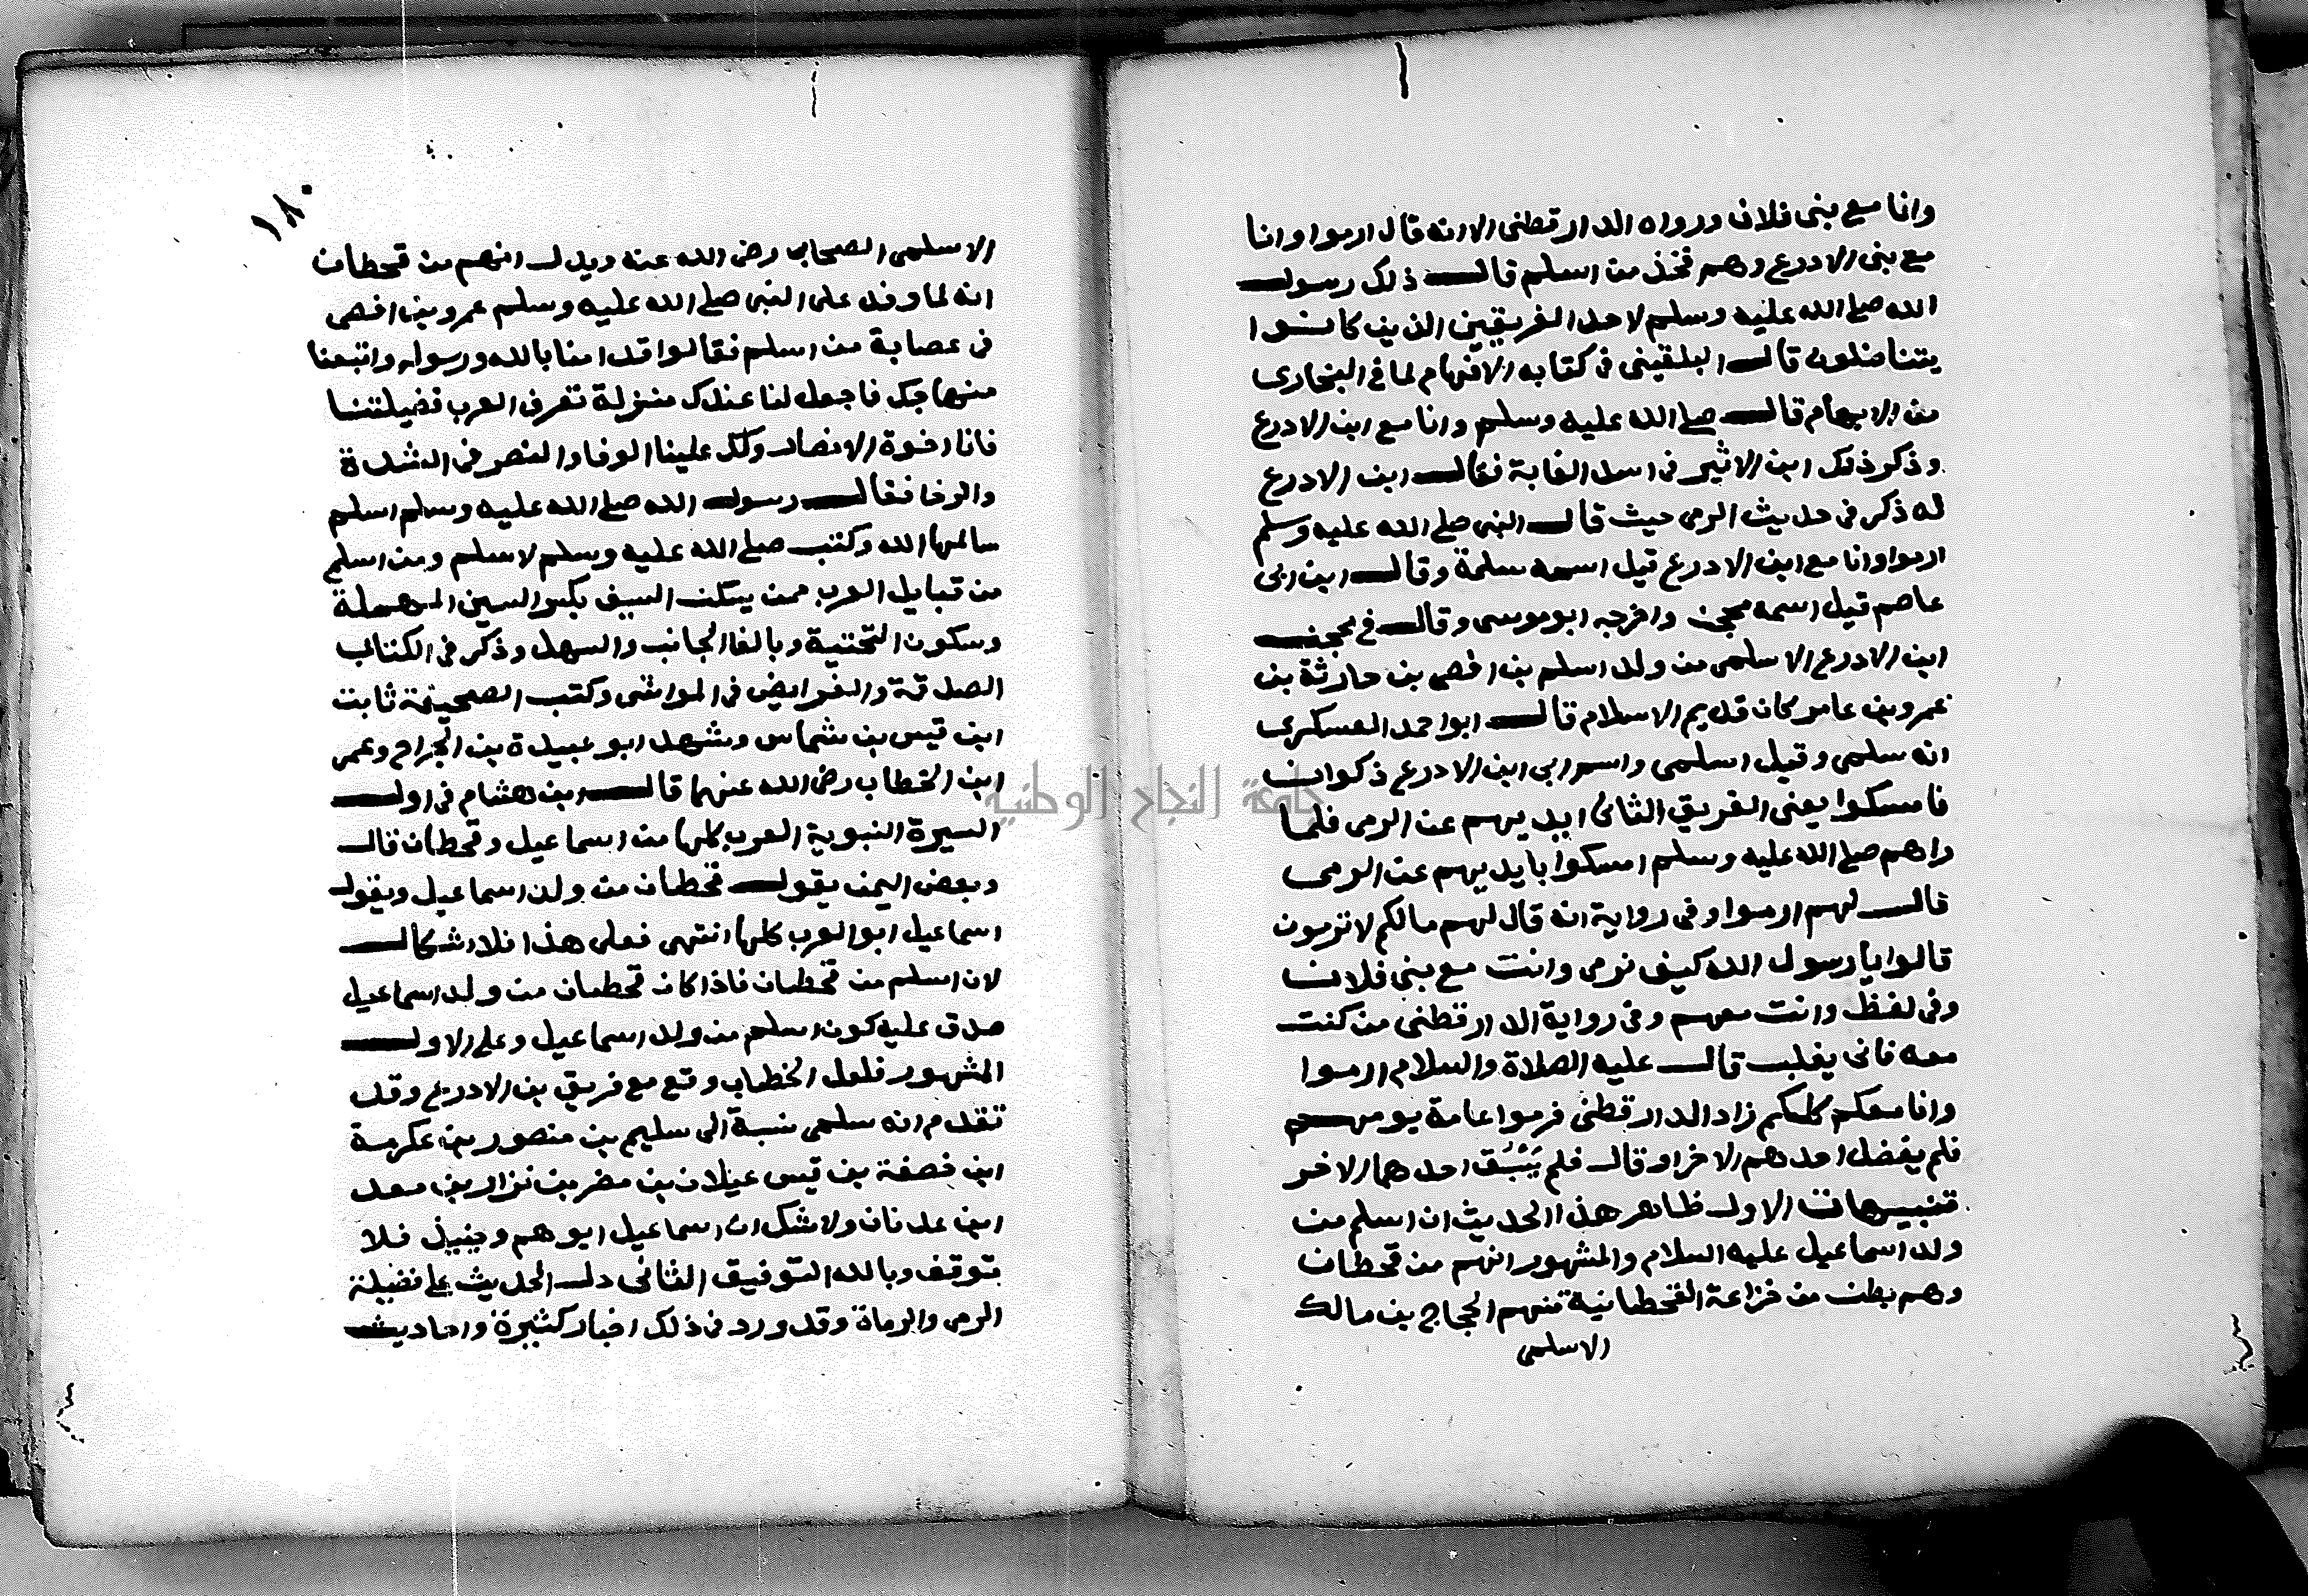 وانا مع بنى فلان ورواه الدارقطنى الا انه قال ارموا وانا
مع بنى الادرع وهم فخذ من اسلم قال ذلك رسول
الله صلى الله عليه وسلم لاحد الفريقين الذين كانوا
يتناضلون قال البلقينى فى كتابه الافهام لما فى البخارى
من الابهام قال صلى الله عليه وسلم وانا مع ابن الادرع
وذكر ذلك ابن الاثير فى اسد الغابة فقال ابن الادرع
له ذكر فى حديث الرمى حيث قال النبى صلى الله عليه وسلم
ارموا وانا مع ابن الادرع قيل اسمه سلمة وقال ابن ابى
عاصم قيل اسمه محجن واخرجه ابو موسى وقال فى محجن
ابن الادرع الاسلمى من ولد اسلم بن افصى بن حارثة بن
عمرو بن عامر كان قديم الاسلام قال ابو احمد العسكرى
انه سلمى وقيل اسلمى واسم ابى ابن الادرع ذكوان
فامسكوا يعنى الفريق الثانى ايديهم عن الرمى فلما
راهم صلى الله عليه وسلم امسكوا بايديهم عن الرمى
قال لهم ارموا وفى رواية انه قال لهم مالكم لا ترمون
قالوا يا رسول الله كيف نرمى وانت مع بنى فلان
وفى لفظ وانت معهم وفى رواية الدارقطنى من كنت
معه فانى يغلب قال عليه الصلاة والسلام ارموا
وانا معكم كلكم زاد الدارقطنى فرموا عامة يومهم
فلم يفضل احدهم الاخر او قال فلم يَسْبُق احدهما الاخر
تنبيهات الاول ظاهر هذا الحديث ان اسلم من
ولد اسماعيل عليه السلام والمشهور انهم من قحطان
وهم بطن من خزاعة القحطانية منهم الحجاج بن مالك
الاسلمى
١٨٠
الاسلمى الصحابى رضى الله عنه ويدل انهم من قحطان
انه لما وفد على النبى صلى الله عليه وسلم عمرو بن افصى
فى عصابة من اسلم فقالوا قد امنا بالله ورسوله واتبعنا
منهاجك فاجعل لنا عندك منزلة تعرف العرب فضيلتنا
فانا اخوة الانصار ولك علينا الوفا والنصر فى الشدة
والرخا فقال رسول الله صلى الله عليه وسلم اسلم
سالمها الله وكتب صلى الله عليه وسلم لاسلم ومن اسلم
من قبايل العرب ممن يسكن السيف بكسر السين المهملة
وسكون التحتية وبالفا الجانب والسهل وذكر فى الكتاب
الصدقة والفرايض فى المواشى وكتب الصحيفة ثابت
ابن قيس بن شماس وشهد ابو عبيدة بن الجراح وعمر
ابن الخطاب رضى الله عنهما قال ابن هشام فى اول
السيرة النبوية العرب كلها من اسماعيل وقحطان قال
وبعض اليمن يقول قحطان من ولد اسماعيل ويقول
اسماعيل ابو العرب كلها انتهى فعلى هذا فلا اشكال
لان اسلم من قحطان فاذا كان قحطان من ولد اسماعيل
صدق عليه كون اسلم من ولد اسماعيل وعلى الاول
المشهور فلعل الخطاب وقع مع فريق بن الادرع وقد
تقدم انه سلمى نسبة الى سليم بن منصور بن عكرمة
ابن خصفة بن قيس عيلان بن مضر بن نزار بن معد
ابن عدنان ولا شك ان اسماعيل ابوهم وحينيذ فلا
توقف وبالله التوفيق الثانى دل الحديث على فضيلة
الرمى والرماة وقد ورد فى ذلك اخبار كثيرة واحاديث
جامعة النجاح الوطنية